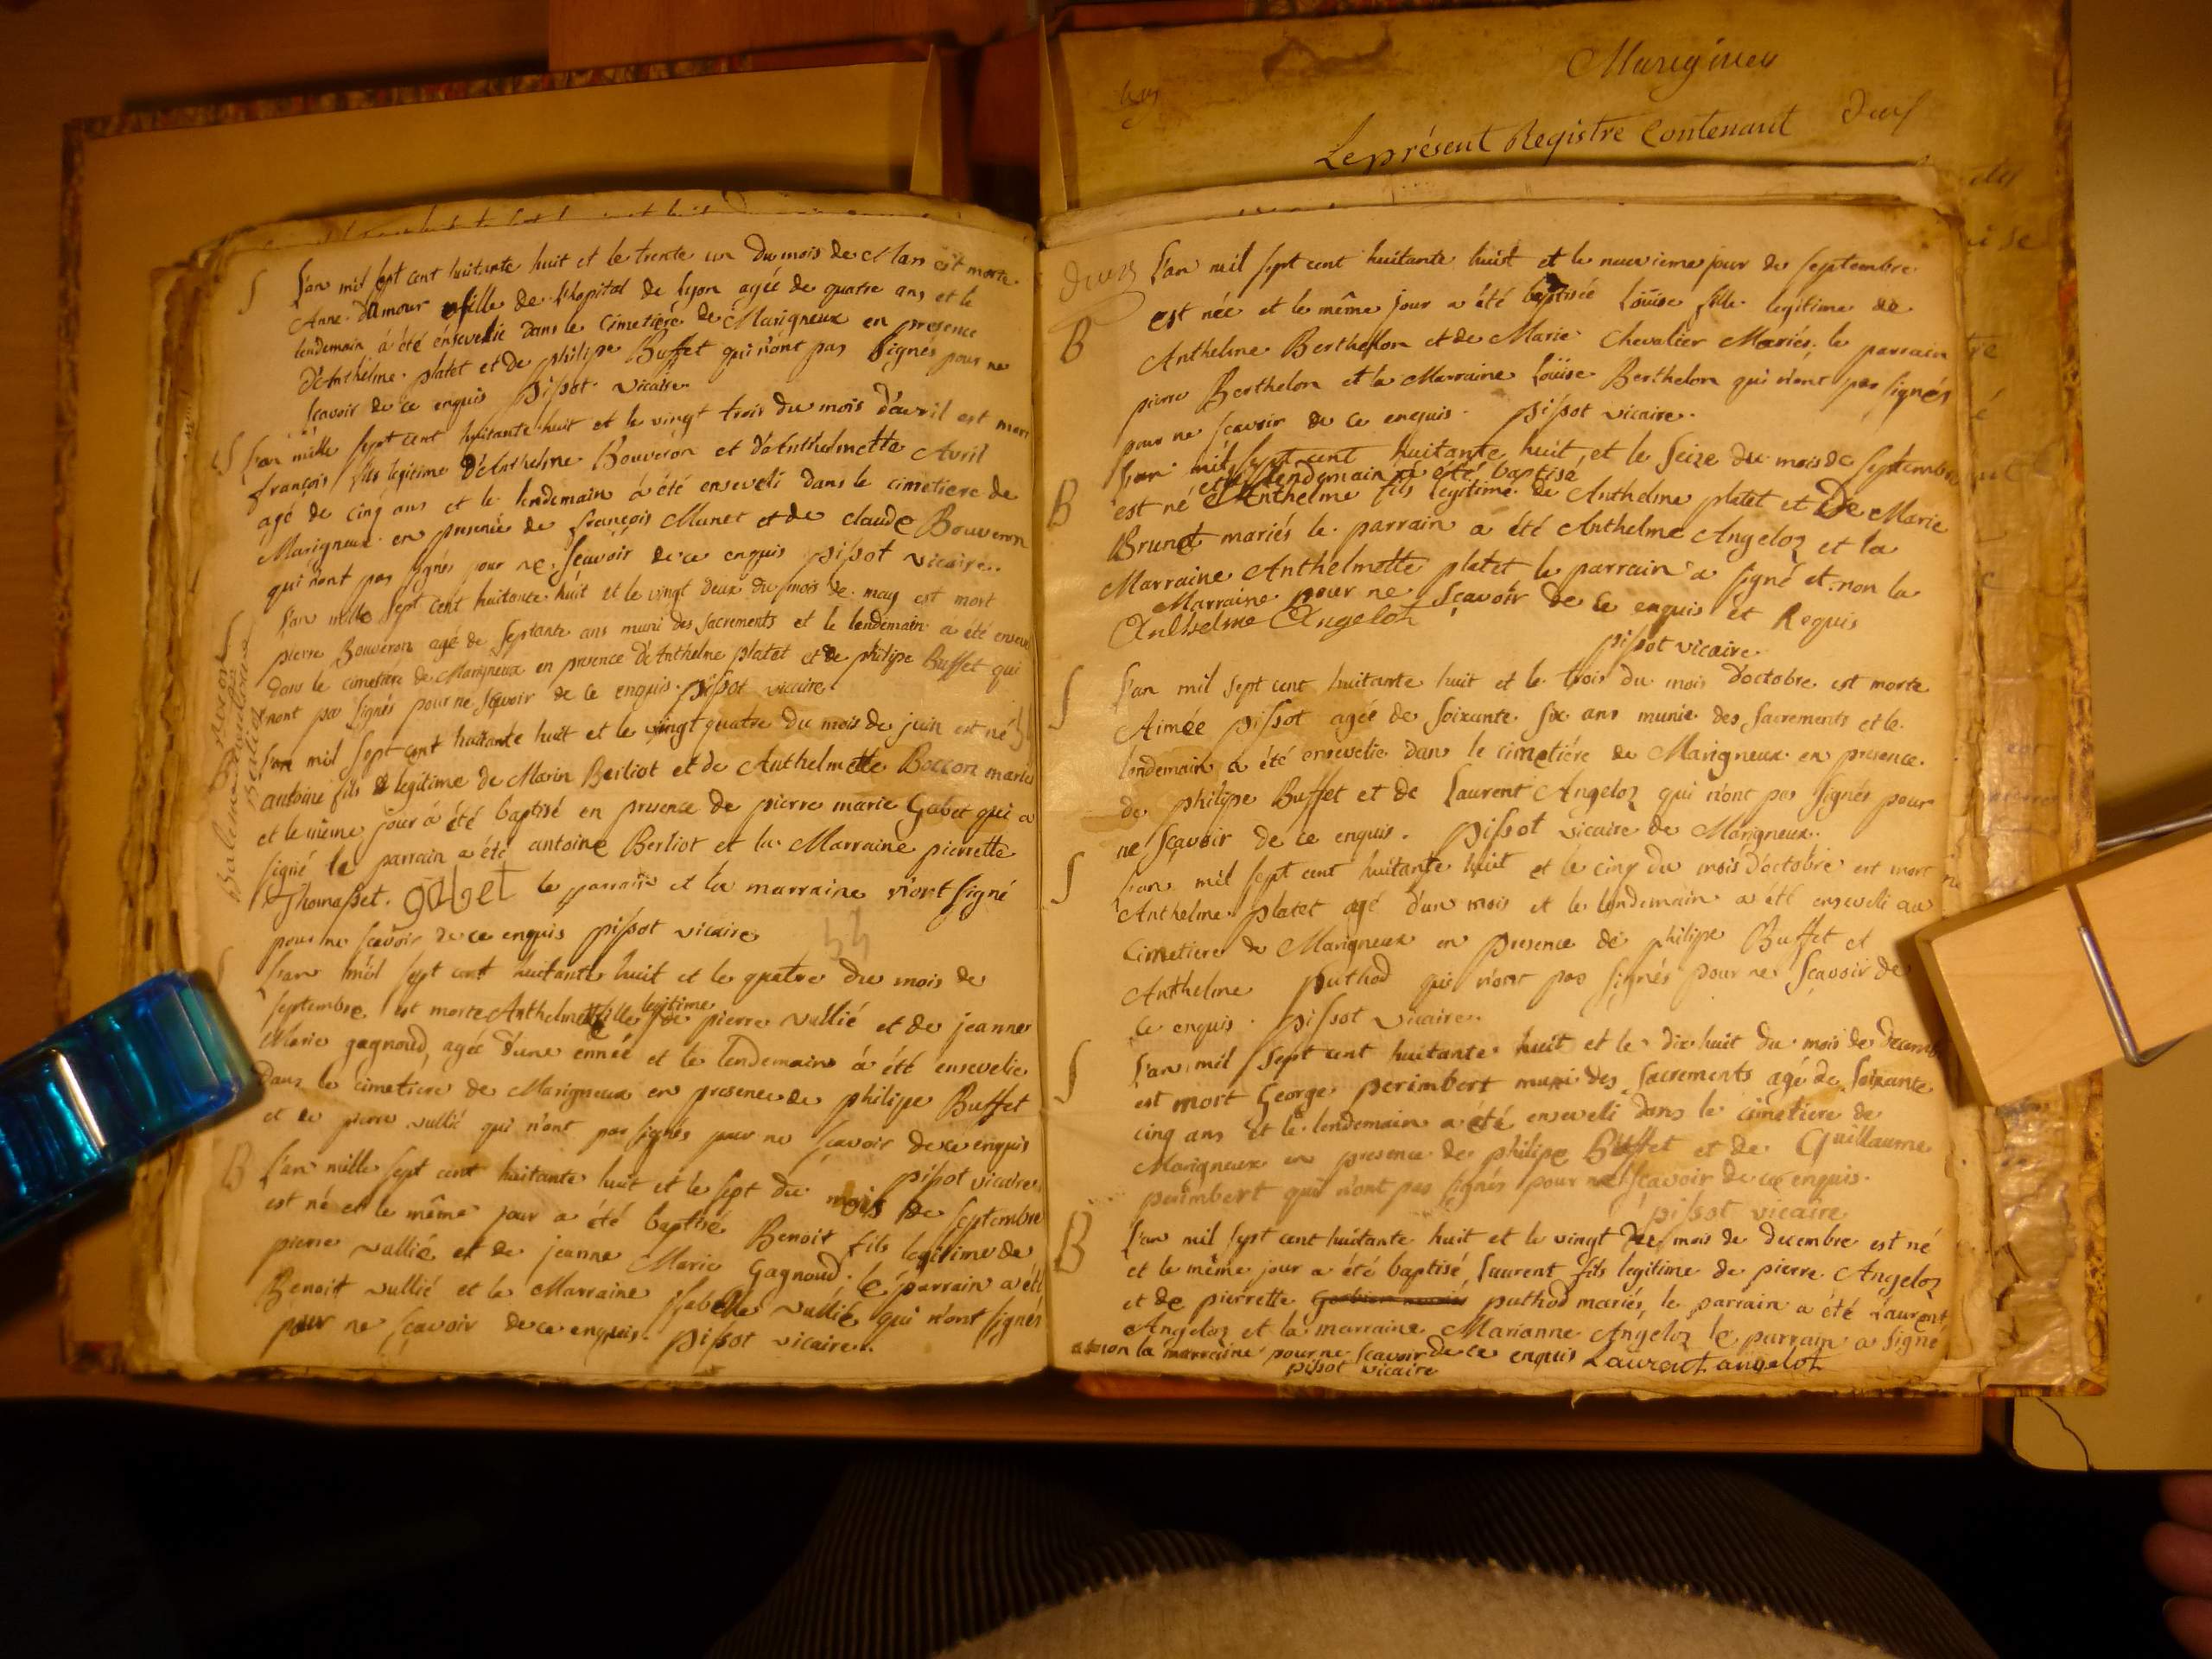 L'an mil sept cent huitante huit et le trente un du mois de Mars est morte
Anne d'amour fille de l'hopital de lyon agée de quatre ans et le
lendemain à été ensevelie dans le cimetiere de Marigneux en presence
d'Anthelme platet et de philipe Buffet qui n'ont pas signés pour ne
sçavoir de ce enquis pissot vicaire
S L'an mille sept cent huitante huit et le vingt trois du mois d'avril est mort
françois fils legitime d'Anthelme Bouveron et d'Anthelmette Avril
agé de cinq ans et le lendemain à été enseveli dans le cimetiere de
Marigneux en presence de françois Munet et de claude Bouveron
qui n'ont pas signés pour ne sçavoir de ce enquis pissot vicaire.
L'an mille sept cent huitante huit et le vingt deux du mois de may est mort
pierre Bouveron agé de septante ans muni des sacrements et le lendemain a été enseveli
dans le cimetiere de Marigneux en presence d'Anthelme platet et de philipe Buffet qui
n'ont pas signés pour ne sçavoir de ce enquis. pissot vicaire
L'an mil sept cent huitante huit et le vingt quatre du mois de juin est né
antoine fils legitime de Marin Berliot et de Anthelmette Boccon mariés
et le même jour à été baptisé en presence de pierre marie Gabet qui a
signé le parrain a été antoine Berliot et la Marraine pierrette
Thomasset. gabet le parrain et la marraine n'ont signé
pour ne sçavoir de ce enquis pissot vicaire
44
L'an mil sept cent huitante huit et le quatre du mois de
septembre est morte Anthelmette fille legitime de pierre vullié et de jeanne
Marie gagnoud, agée d'une ennée et le lendemain à été ensevelie
Dans le cimetiere de Marigneux en presence de philipe Buffet
et de pierre vullié qui n'ont pas signés pour ne sçavoir de ce enquis
pissot vicaire
B L'an mille sept cent huitante huit et le sept du mois de septembre
est né et le même jour a été baptisé Benoit fils legitime de
pierre vullié et de jeanne Marie Gagnoud. le parrain a été
Benoit vullié et la Marraine jsabelle vullié qui n'ont signés
pour ne sçavoir de ce enquis. pissot vicaire.
Marigneu
Leprésent Registre Contenant
L'an mil sept cent huitante huit et le neuvieme jour de septembre
B est née et le même jour a été baptisée Loüise fille legitime de
Anthelme Berthelon et de Marie Chevalier Mariés, le parrain
pierre Berthelon et la Marraine Loüise Berthelon qui n'ont pas signés
pour ne sçavoir de ce enquis. pissot vicaire.
L'an mil sept cent huitante huit, et le seize du mois de septembre
et le lendemain a été baptisé
B est né Anthelme fils legitime de Anthelme platet et De Marie
Brunet mariés le parrain a été Anthelme Angeloz et la
Marraine Anthelmette platet le parrain a signé et non la
Marraine pour ne sçavoir de ce enquis et Requis
Anthelme Angeloz
pissot vicaire.
S L'an mil sept cent huitante huit et le trois du mois d'octobre est morte
Aimée pissot agée de soixante six ans munie des sacrements et le
lendemain a été ensevelie dans le cimetiére de Marigneux en presence
de philipe Buffet et de Laurent Angeloz qui n'ont pas signés pour
ne sçavoir de ce enquis. pissot vicaire de Marigneux.
S L'an mil sept cent huitante huit et le cinq du mois d'octobre est mort
Anthelme platet agé d'un mois et le lendemain a été enseveli au
cimetiere de Marigneux en presence de philipe Buffet et
Anthelme puthod qui n'ont pas signés pour ne sçavoir de
ce enquis. pissot vicaire.
S L'an mil sept cent huitante huit et le dix huit du mois de decembre
est mort George perimbert muni des sacrements agé de soixante
cinq ans et le lendemain a été enseveli dans le cimetiere de
Marigneux en presence de philipe Buffet et de Guillaume
perimbert qui n'ont pas signés pour ne sçavoir de ce enquis.
pissot vicaire
B L'an mil sept cent huitante huit et le vingt mois de decembre est né
et le même jour a été baptisé Laurent fils legitime de pierre Angeloz
et de pierrette puthod mariés, le parrain a été Laurent
Angeloz et la marraine Marianne Angeloz le parrain a signé
et non la marraine pour ne sçavoir de ce enquis Laurent angeloz
pissot vicaire